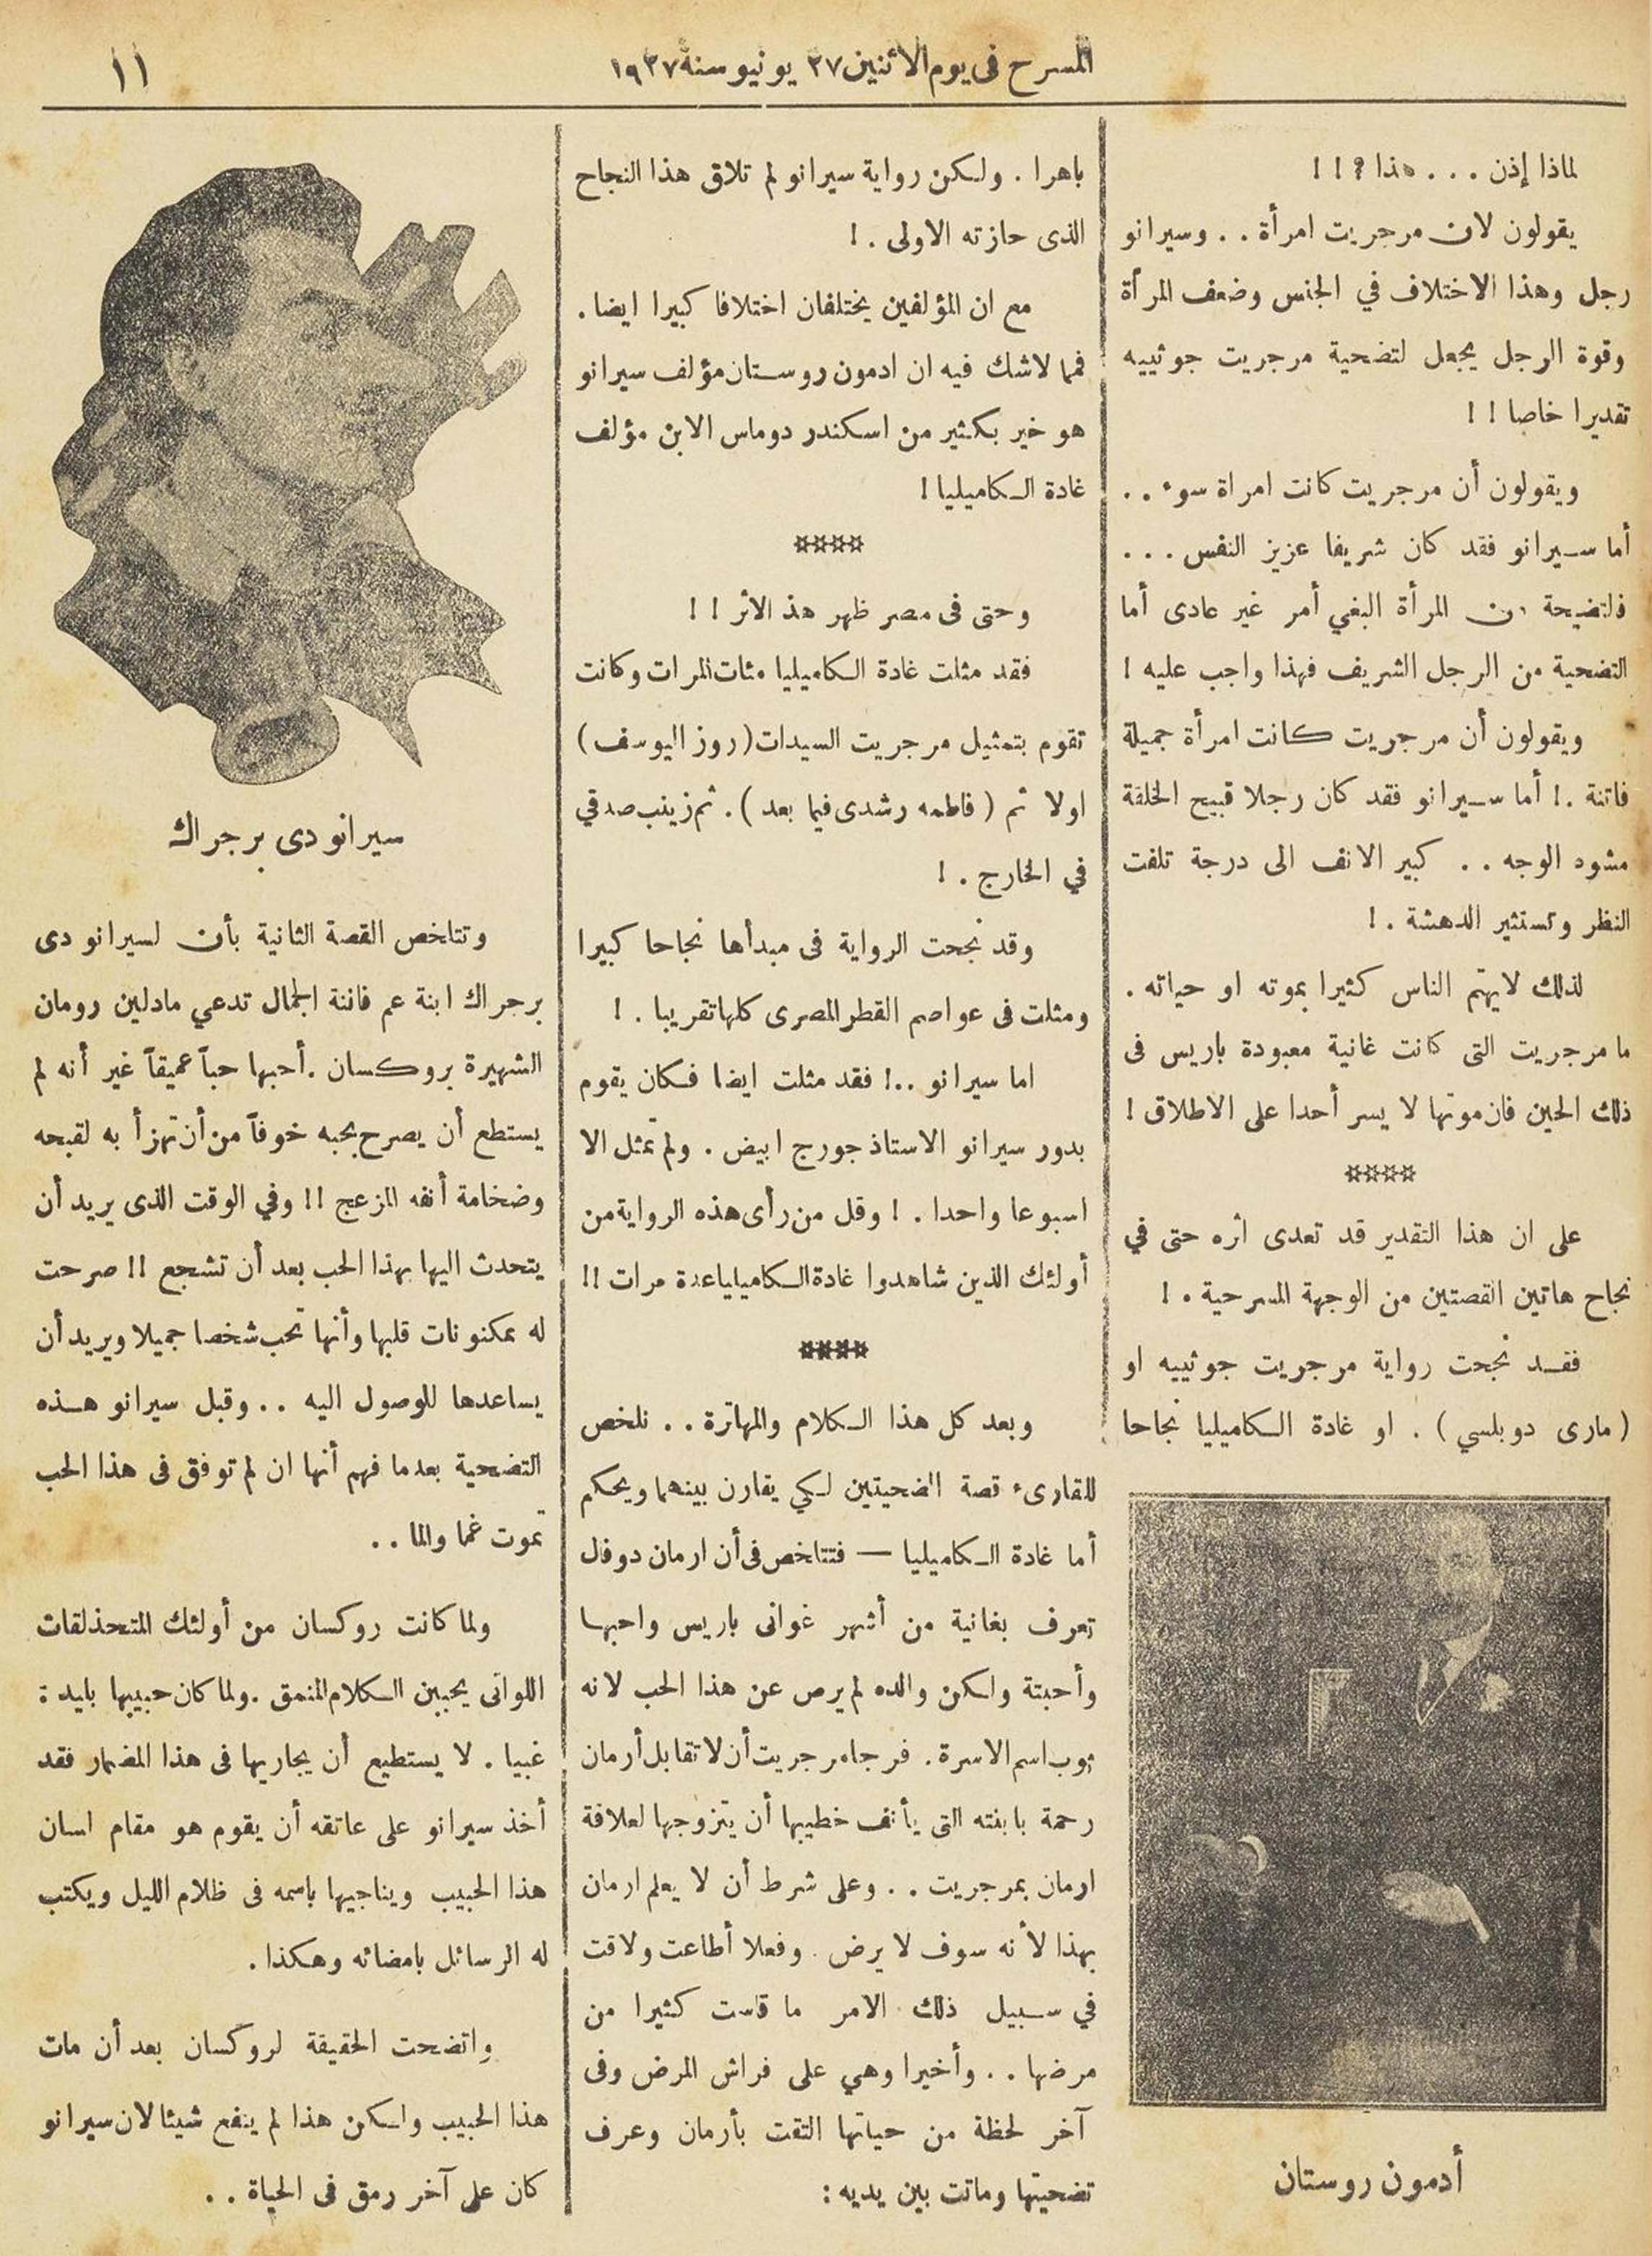 المسرح فى يوم الأثنين ٢٧ يونيو سنة ١٩٢٧
١١
لماذا إذن . . . هذا ؟ ! !
يقولون لان مرجريت امرأة . . وسيرانو
رجل وهذا الاختلاف في الجنس وضعف المرأة
وقوة الرجل يجعل لتضحية مرجريت جوتييه
تقديرا خاصا ! !
ويقولون أن مرجريت كانت امراة سوء . .
أما سيرانو فقد كان شريفا عزيز النفس . . .
فلتضيحة من المرأة البغي أمر غير عادى أما
التضحية من الرجل الشريف فهذا واجب عليه !
ويقولون أن مرجريت كانت امرأة جميلة
فاتنة . ! أما سيرانو فقد كان رجلا قبيح الخلقة
مشوه الوجه . . كبير الانف الى درجة تلفت
النظر وتستثير الدهشة . !
لذلك لايهتم الناس كثيرا بموته او حياته .
ما مرجريت التى كانت غانية معبودة باريس فى
ذلك الحين فان موتها لا يسر أحدا على الاطلاق !
****
على ان هذا التقدير قد تعدى اثره حتى في
نجاح هاتين القصتين من الوجهة المسرحية . !
فقد نجحت رواية مرجريت جوتييه او
( مارى دوبلسي ) . او غادة الكاميليا نجاحا
أدمون روستان
باهرا . ولكن رواية سيرانو لم تلاق هذا النجاح
الذى حازته الاولى . !
مع ان المؤلفين يختلفان اختلافا كبيرا ايضا .
فمما لاشك فيه ان ادمون روستان مؤلف سيرانو
هو خير بكثير من اسكندر دوماس الابن مؤلف
غادة الكاميليا !
****
وحتى فى مصر ظهر هذ الاثر ! !
فقد مثلت غادة الكاميليا مئات المرات وكانت
تقوم بتمثيل مرجريت السيدات ( روز اليوسف )
اولا ثم ( فاطمه رشدى فيما بعد ) . ثم زينب صدقي
في الخارج . !
وقد نجحت الرواية فى مبدأها نجاحا كبيرا
ومثلت فى عواصم القطر المصرى كلها تقريبا . !
اما سيرانو ..! فقد مثلت ايضا فكان يقوم
بدور سيرانو الاستاذ جورج ابيض . ولم تمثل الا
اسبوعا واحدا . ! وقل من رأى هذه الرواية من
أولئك الذين شاهدوا غادة الكاميليا عدة مرات !!
****
وبعد كل هذا الكلام والمهاترة . . نلخص
للقارىء قصة الضحيتين لكي يقارن بينهما ويحكم
أما غادة الكاميليا — فتتلخص فى أن ارمان دوفال
تعرف بغانية من أشهر غوانى باريس واحبها
وأحبتة ولكن والده لم يرض عن هذا الحب لانه
يوب اسم الاسرة . فرجا مرجريت أن لا تقابل أرمان
رحمة بابنته التى يأنف خطيبها أن يتزوجها لعلاقة
ارمان بمرجريت . . وعلى شرط أن لا يعلم ارمان
بهذا لأنه سوف لا يرض . وفعلا أطاعت ولاقت
في سبيل ذلك الامر ما قاست كثيرا من
مرضها . . وأخيرا وهي على فراش المرض وفى
آخر لحظة من حياتها التقت بأرمان وعرف
تضحيتها وماتت بين يديه :
سيرانو دى برجراك
وتتلخص القصة الثانية بأن لسيرانو دى
برجراك ابنة عم فاتنة الجمال تدعي مادلين رومان
الشهيرة بروكسان . أحبها حباً عميقاً غير أنه لم
يستطع أن يصرح بحبه خوفاً من أن تهزأ به لقبحه
وضخامة أنفه المزعج !! وفي الوقت الذى يريد أن
يتحدث اليها بهذا الحب بعد أن تشجع !! صرحت
له بمكنونات قلبها وأنها تحب شخصا جميلا ويريد أن
يساعدها للوصول اليه . . وقبل سيرانو هذه
التضحية بعد ما فهم أنها ان لم توفق فى هذا الحب
تموت غما والما . .
ولما كانت روكسان من أولئك المتحذلقات
اللواتى يحببن الكلام المنمق . ولما كان حبيبها بليدة
غبيا . لا يستطيع أن يجاريها فى هذا المضمار فقد
أخذ سيرانو على عاتقه أن يقوم هو مقام لسان
هذا الحبيب ويناجيها باسمه فى ظلام الليل ويكتب
له الرسائل بامضائه وهكذا .
واتضحت الحقيقة لروكسان بعد أن مات
هذا الحبيب ولكن هذا لم ينفع شيئا لان سيرانو
كان على آخر رمق فى الحياة . .